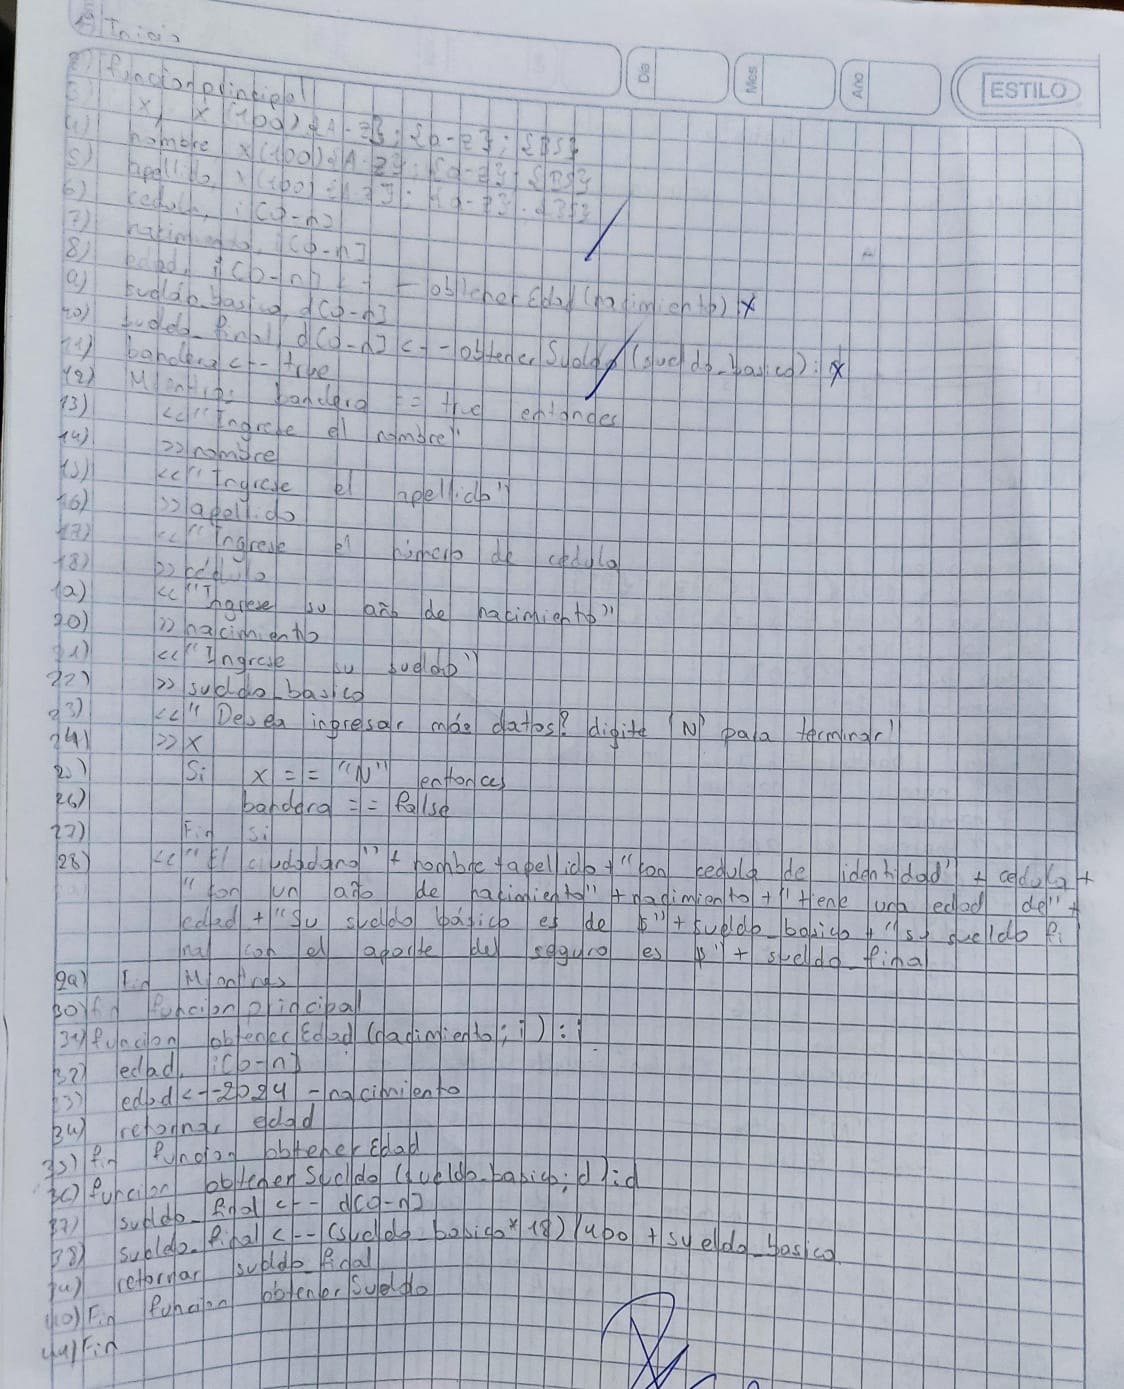 1) Inicio
Dia Mes Año ESTILO
2) funcion principal
3) x, x (100) {A-Z}; {a-z};
4) nombre x(100) {A-Z}; {a-z};
5) apellido, x(100) {A-Z}; {a-z};
6) cedula, i[0-n]
7) nacimiento, i[0-n]
8) edad, i[0-n] <-- obtener Edad (nacimiento) x
9) sueldo_basico, d[0-n]
10) sueldo_final, d[0-n] <-- obtener Sueldo (sueldo_basico); x
11) bandera <-- true
12) Mientras bandera == true entonces
13) <<"Ingrese el nombre"
14) >>nombre
15) <<"Ingrese el apellido"
16) >>apellido
17) <<"Ingrese el número de cedula
18) >>cédula
19) <<"Ingrese su año de nacimiento"
20) >>nacimiento
21) <<"Ingrese su sueldo"
22) >>sueldo_basico
23) <<"Desea ingresar más datos? digite 'N' para terminar"
24) >>x
25) Si x == "N" entonces
26) bandera == false
27) Fin Si
28) <<"El ciudadano"+ nombre +apellido+"con cedula de identidad" + cedula +
"con un año de nacimiento"+nacimiento+"tiene una edad de"+
edad +"Su sueldo básico es de $"+sueldo_basico +"su sueldo fi
nal con el aporte del seguro es $"+ sueldo_final
29) Fin Mientras
30) fin funcion principal
31) funcion obtener Edad (nacimiento; i): i
32) edad, i[0-n]
33) edad <--2024 -nacimiento
34) retornar edad
35) fin funcion obtener Edad
36) funcion obtener Sueldo (sueldo_basico; d):d
37) sueldo_final <-- d[0-n]
38) sueldo_final <-- (sueldo_basico*18)/400 + sueldo_basico
retornar sueldo_final
40) Fin funcion obtener Sueldo
41) Fin